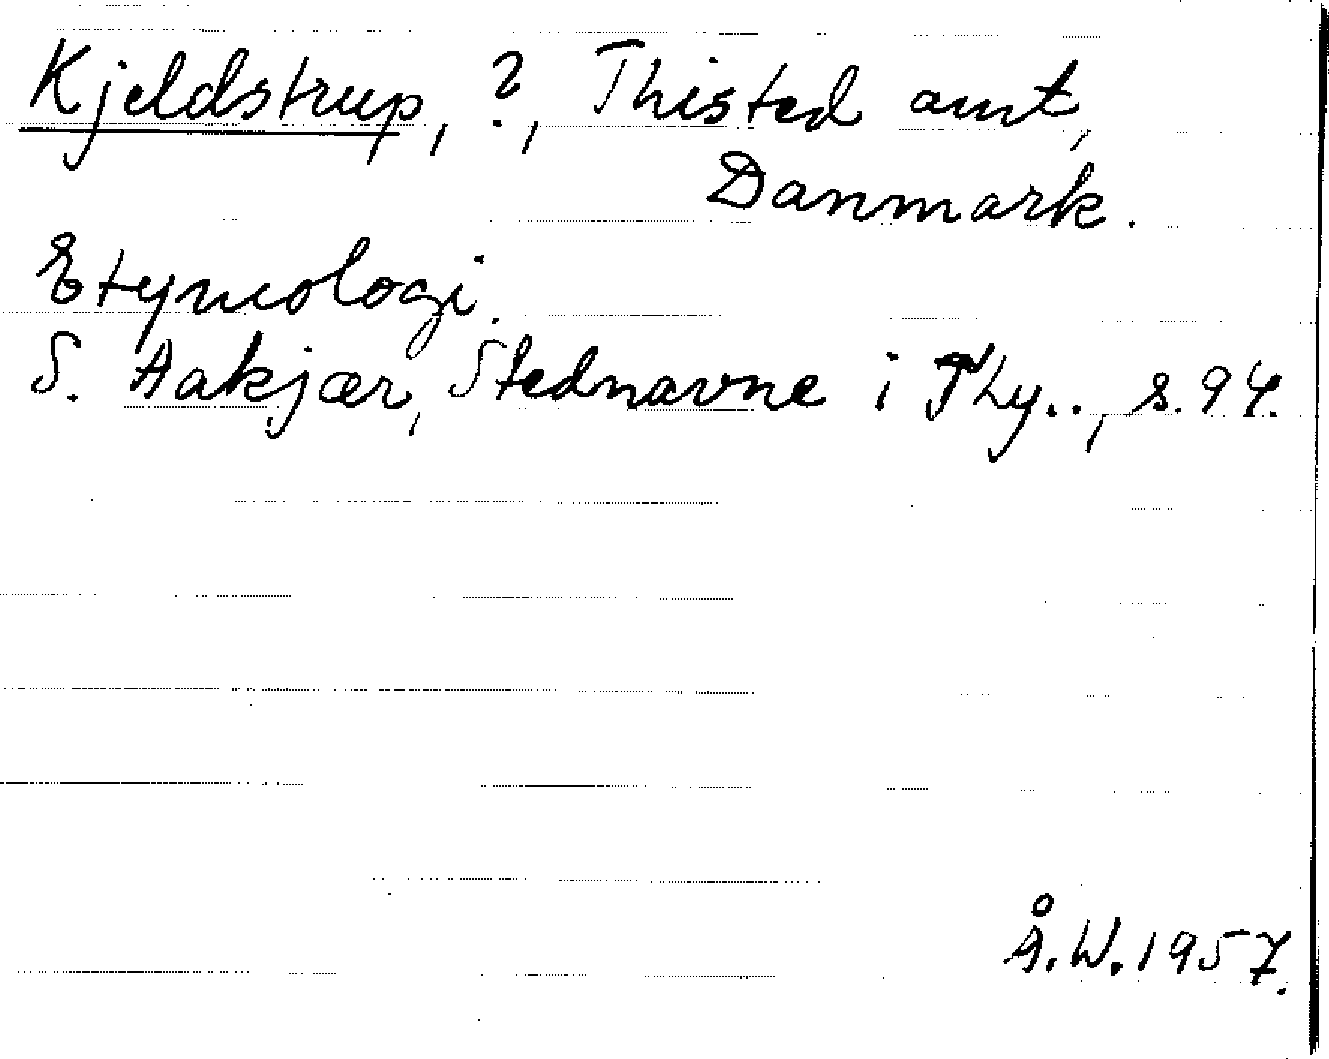 Kjeldstrup, ?, Thisted amt,
Danmark.
Etymologi.
S. Aakjær, Stednavne i Thy.., s. 94.
Å.W. 1957.